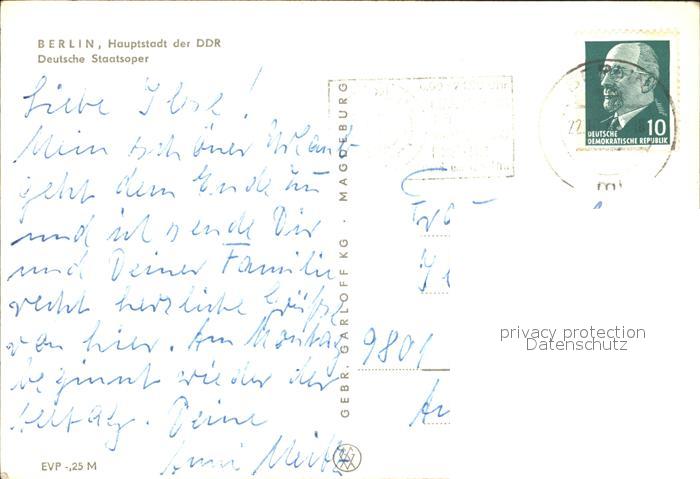 BERLIN, Hauptstadt der DDR
Deutsche Staatsoper
Liebe Ilse!
Mein schöner Urlaub
geht dem Ende zu
und ich sende Dir
und Deiner Familie
recht herzliche Grüße
von hier. Am Montag
beginnt wieder der
Alltag. Deine
Anni
EVP -,25 M
GEBR. GARLOFF KG · MAGDEBURG
10
DEUTSCHE
DEMOKRATISCHE REPUBLIK
BERLIN
9801
privacy protection
Datenschutz